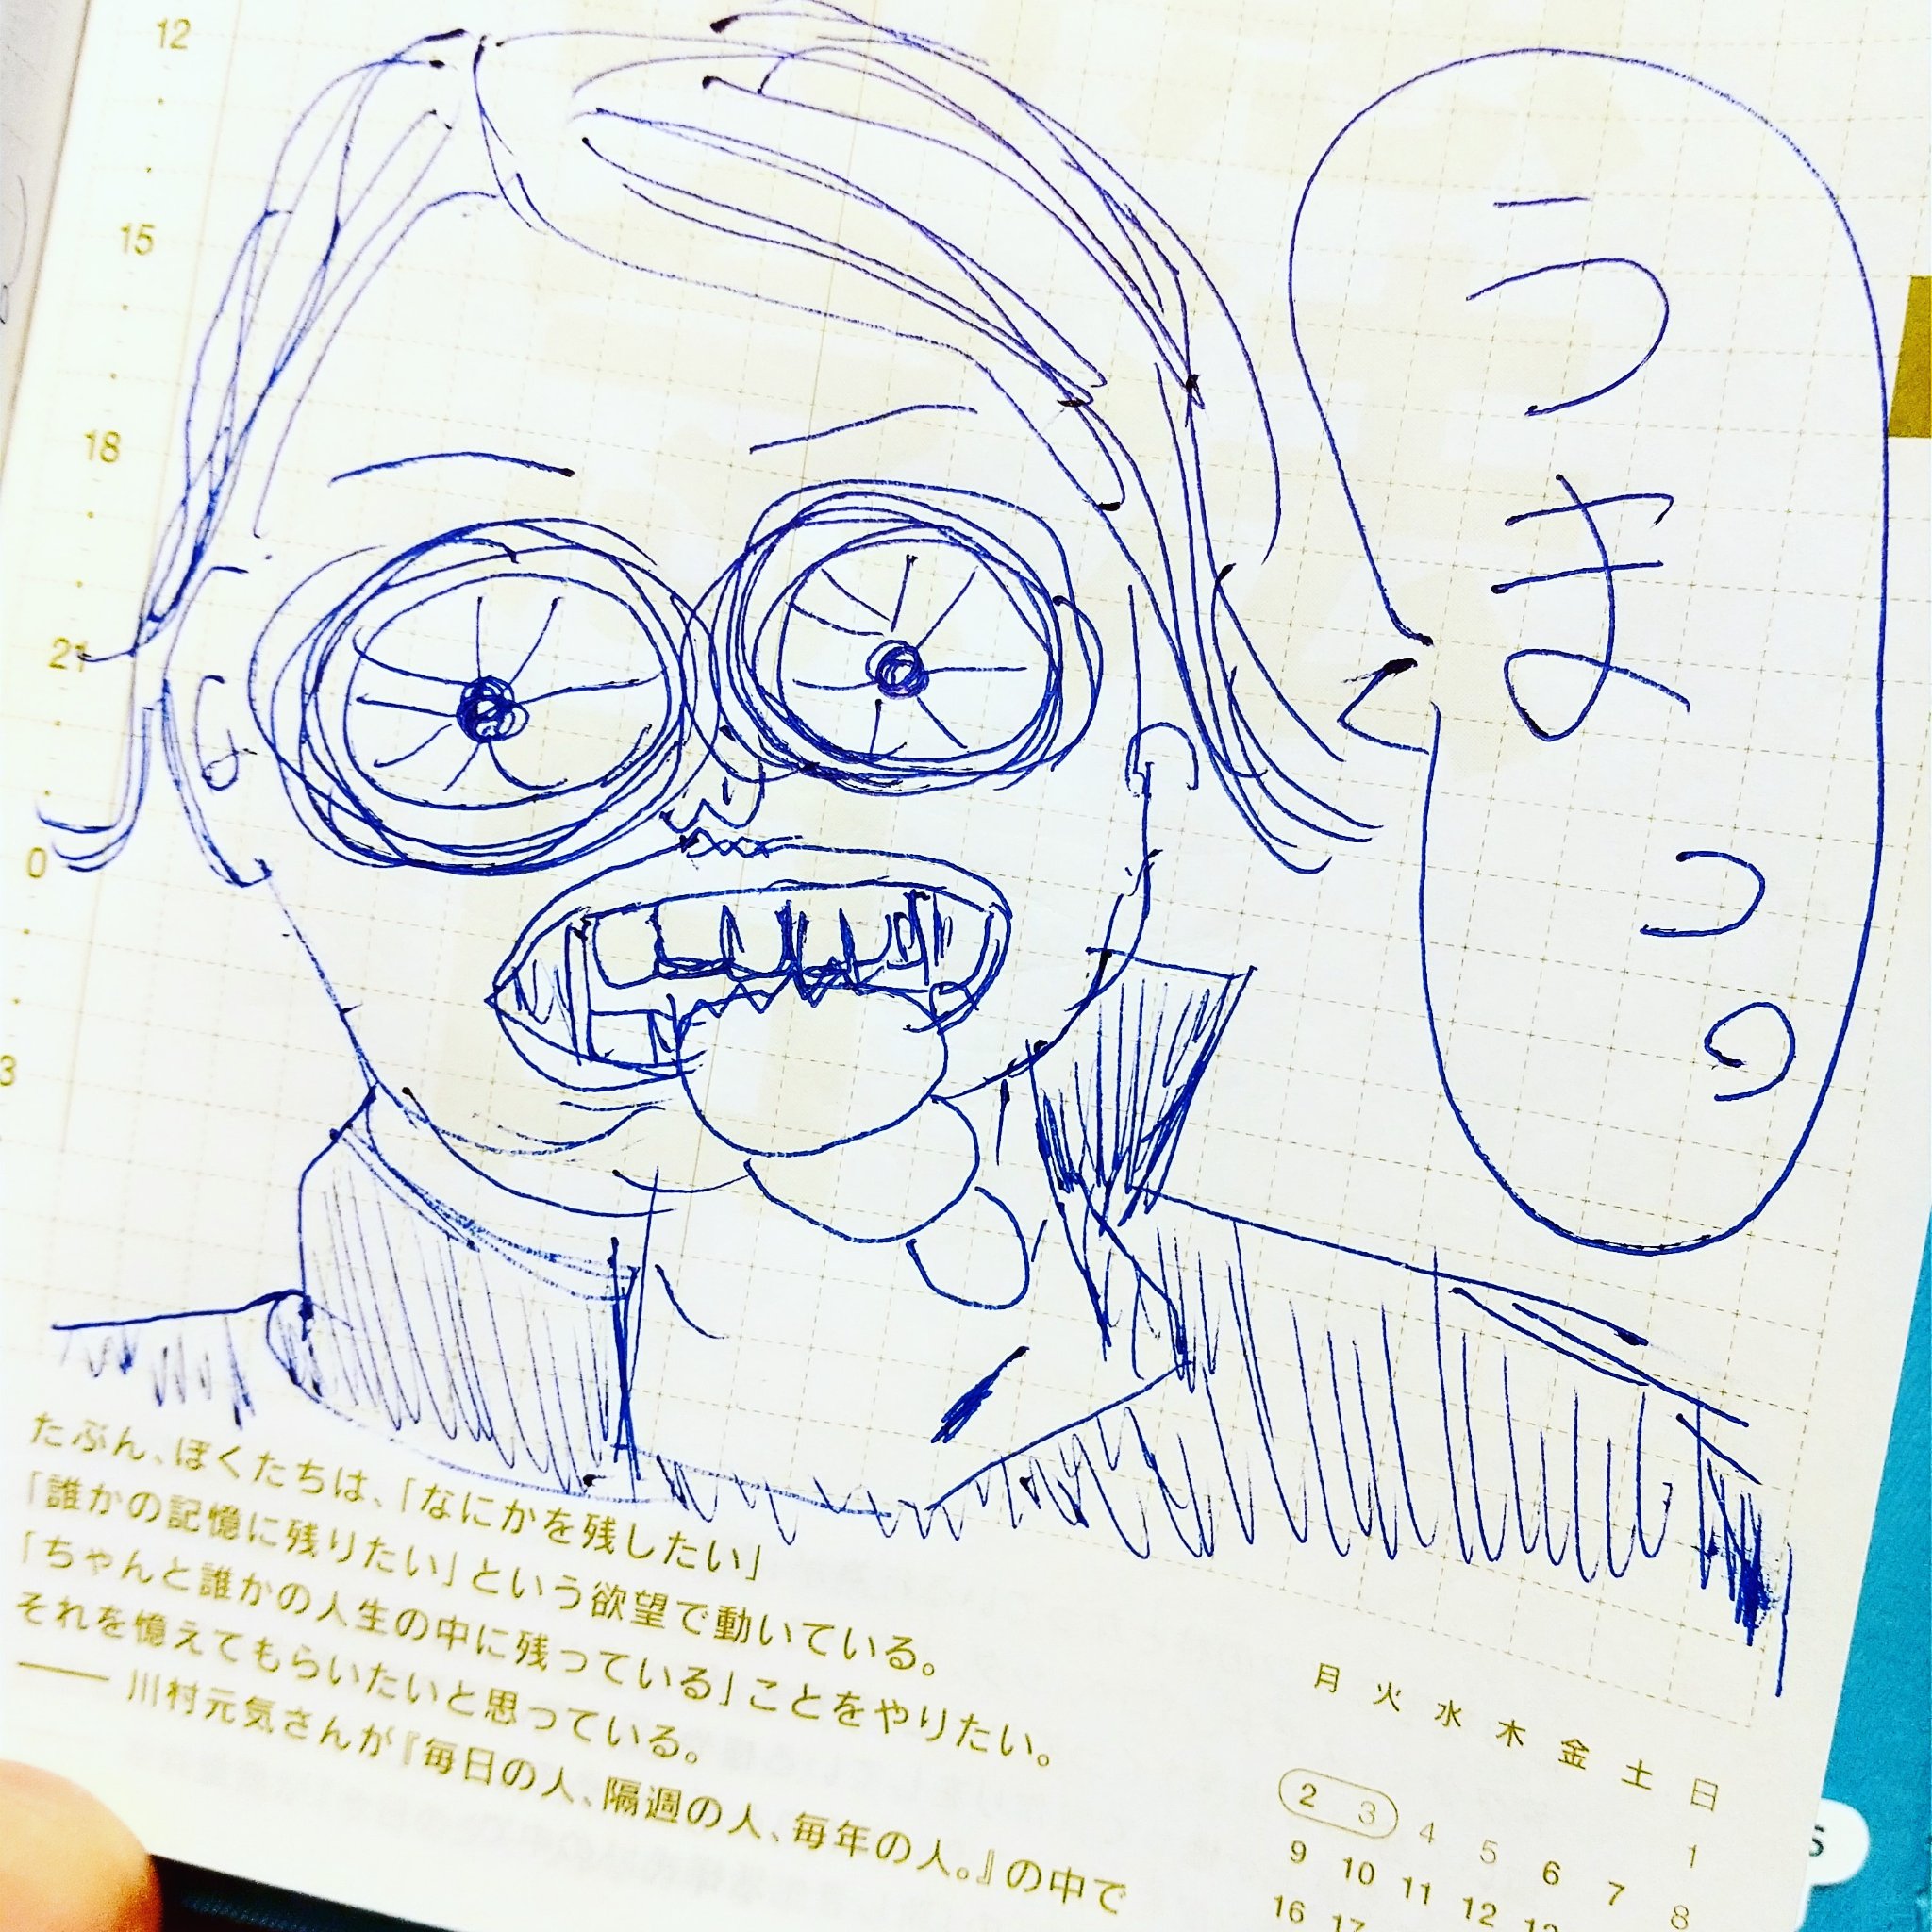 12
15
18
21
0
3
うまっっ
たぶん、ぼくたちは、「なにかを残したい」
「誰かの記憶に残りたい」という欲望で動いている。
「ちゃんと誰かの人生の中に残っている」ことをやりたい。
それを憶えてもらいたいと思っている。
―― 川村元気さんが『毎日の人、隔週の人、毎年の人。』の中で
月 火 水 木 金 土 日
1
2 3 4 5 6 7 8
9 10 11 12 13
16 17